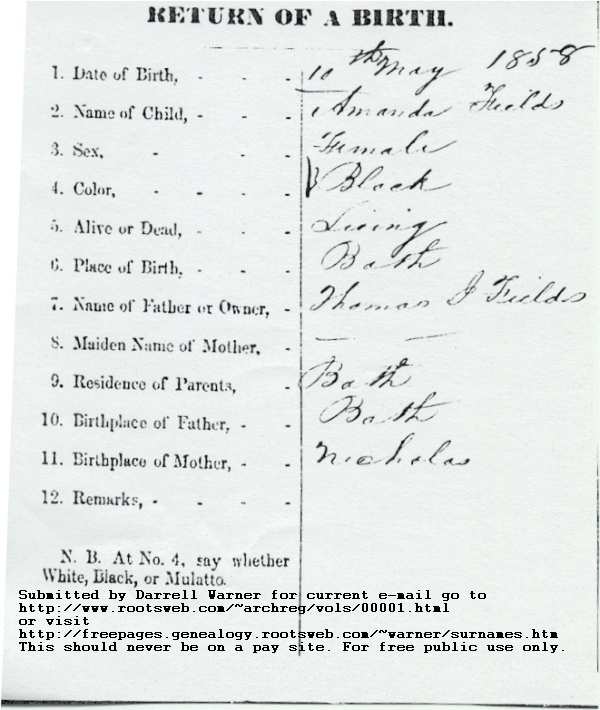 RETURN OF A BIRTH.
1. Date of Birth, - - - 10th May 1858
2. Name of Child, - - - Amanda Fields
3. Sex, - - - Female
4. Color, - - - - Black
5. Alive or Dead, - - - Living
6. Place of Birth, - - - Bath
7. Name of Father or Owner, - Thomas J Fields
8. Maiden Name of Mother, - — —
9. Residence of Parents, - Bath
10. Birthplace of Father, - - Bath
11. Birthplace of Mother, - - Nicholas
12. Remarks, - - - -
N. B. At No. 4, say whether
White, Black, or Mulatto.
Submitted by Darrell Warner for current e-mail go to
http://www.rootsweb.com/~archreg/vols/00001.html
or visit
http://freepages.genealogy.rootsweb.com/~warner/surnames.htm
This should never be on a pay site. For free public use only.